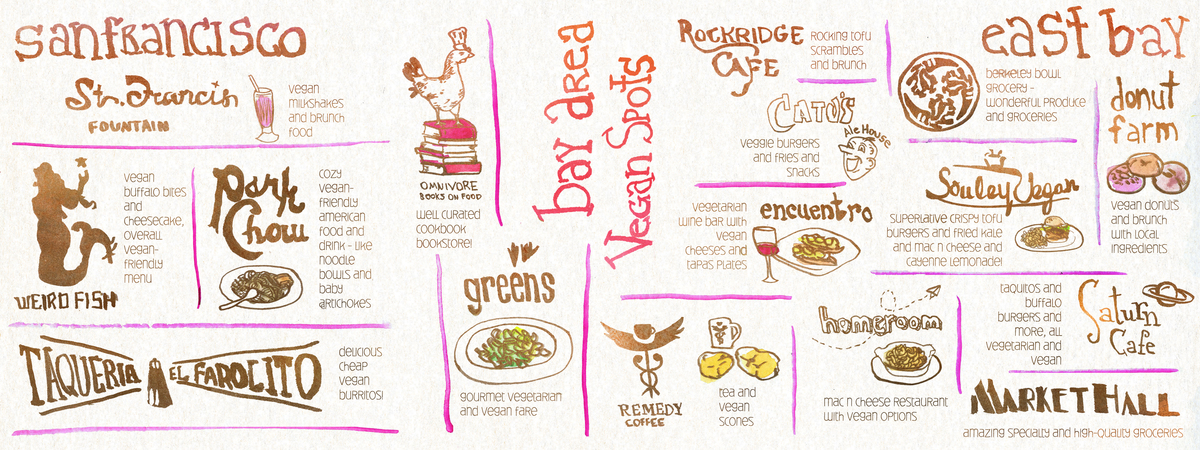 sanfrancisco
St. Francis
FOUNTAIN
vegan
milkshakes
and brunch
food
vegan
buffalo bites
and
cheesecake,
overall
vegan-
friendly
menu
WEIRD FISH
Park
Chow
cozy
vegan-
friendly
american
food and
drink - like
noodle
bowls and
baby
artichokes
TAQUERIA EL FAROLITO
delicious
cheap
vegan
burritos!
OMNIVORE
BOOKS ON FOOD
well curated
cookbook
bookstore!
greens
gourmet vegetarian
and vegan fare
bay area
Vegan Spots
ROCKRIDGE
CAFE
rocking tofu
scrambles
and brunch
CATO'S
Ale House
veggie burgers
and fries and
snacks
vegetarian
wine bar with
vegan
cheeses and
tapas plates
encuentro
REMEDY
COFFEE
tea and
vegan
scones
homeroom
mac n cheese restaurant
with vegan options
east bay
berkeley bowl
grocery -
wonderful produce
and groceries
donut
farm
vegan donuts
and brunch
with local
ingredients
Souley Vegan
superlative crispy tofu
burgers and fried kale
and mac n cheese and
cayenne lemonade!
taquitos and
buffalo
burgers and
more, all
vegetarian and
vegan
Saturn
Cafe
MARKET HALL
amazing specialty and high-quality groceries